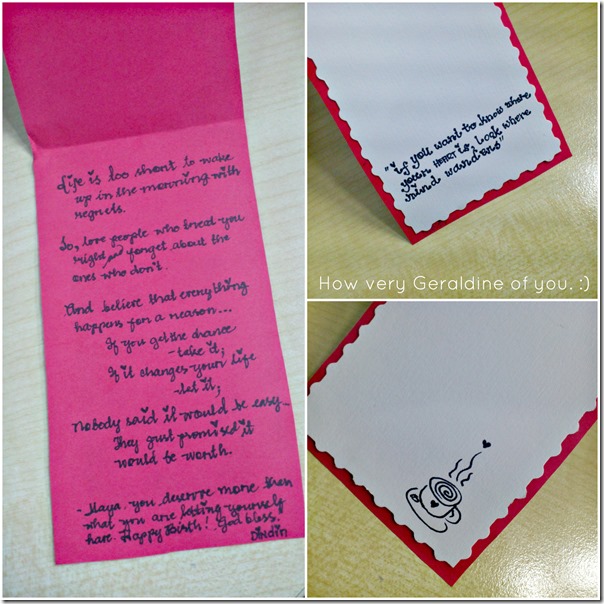 Life is too short to wake
up in the morning with
regrets.
So, love people who treat you
right and forget about the
ones who don't.
And believe that everything
happens for a reason...
If you get the chance
- take it;
If it changes your life
- let it;
Nobody said it would be easy...
They just promised it
would be worth.
- Maya. you deserve more than
what you are letting yourself
have. Happy Birth! God bless.
Dindin
"if you want to know where
your HEART is, look where
mind wanders"
How very Geraldine of you. :)